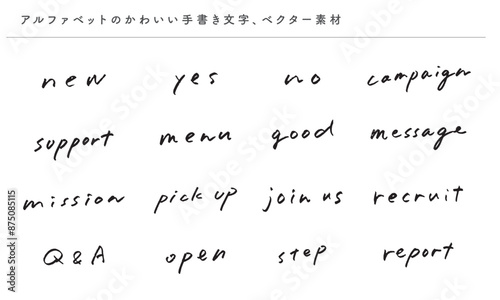 アルファベットのかわいい手書き文字、ベクター素材
new yes no campaign
support menu good message
mission pick up join us recruit
Q & A open step report
Adobe Stock | #875085115